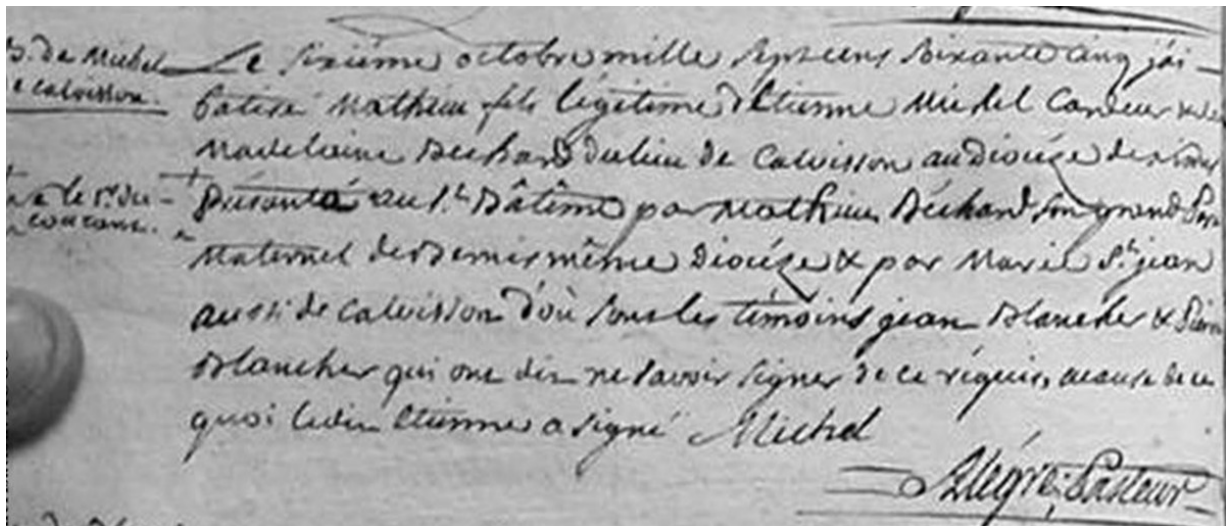 B. de Michel
de calvisson.
Le sixiéme octobre mille sept cens soixante cinq j'ai
batisé Mathieu fils légitime d'Etienne Michel Cardeur & de
Madelaine Béchard du lieu de Calvisson au Diocéze de nimes
né le 1er. du
courant.
Présenté au St. Bâtême par Mathieu Béchard son grand Pere
Maternel de Bernis même Diocéze & par Marie St. jean
aussi de Calvisson d'où sont les témoins jean Blancher & Pierre
Blancher qui ont dit ne savoir signer de ce réquis, a cause de ce
quoi ledit Etienne a signé Michel
Alégre: Pasteur